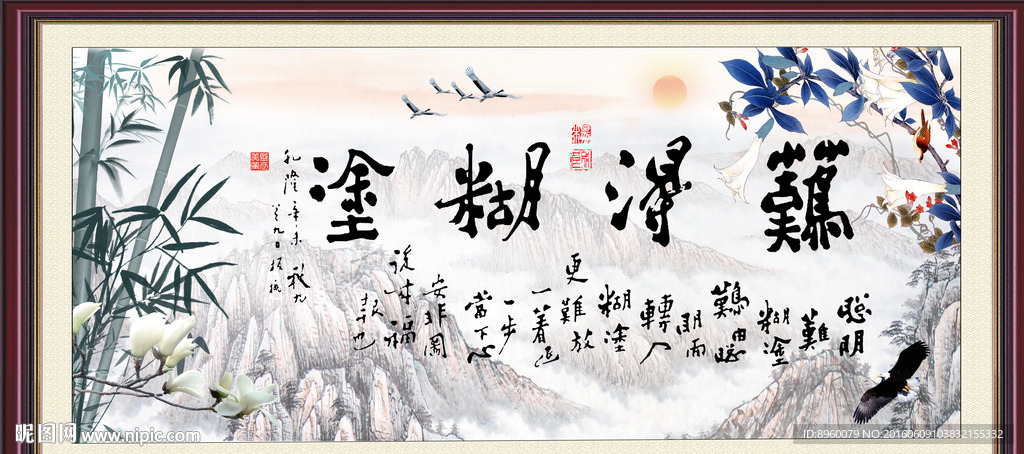 難得糊塗
聰明
難
糊塗
難由聰
明而
轉入
糊塗
更難放
一着退
一步
當下心
安非圖
後來福
報也
乾隆辛未秋九
九日板橋
昵图网 www.nipic.com
ID:8960079 NO:20160609103832155332